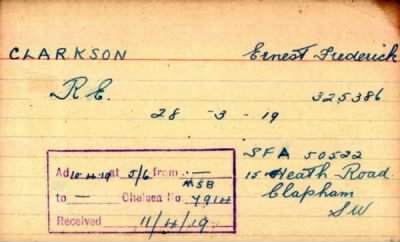 CLARKSON Ernest Frederick
R.E. 325386
28 - 3 - 19
SFA 50522
15 Heath Road
Clapham
SW
Ad 10.4.19 at 5/6 from —
MSB
to — Chelsea No. 7914
Received 11/4/19